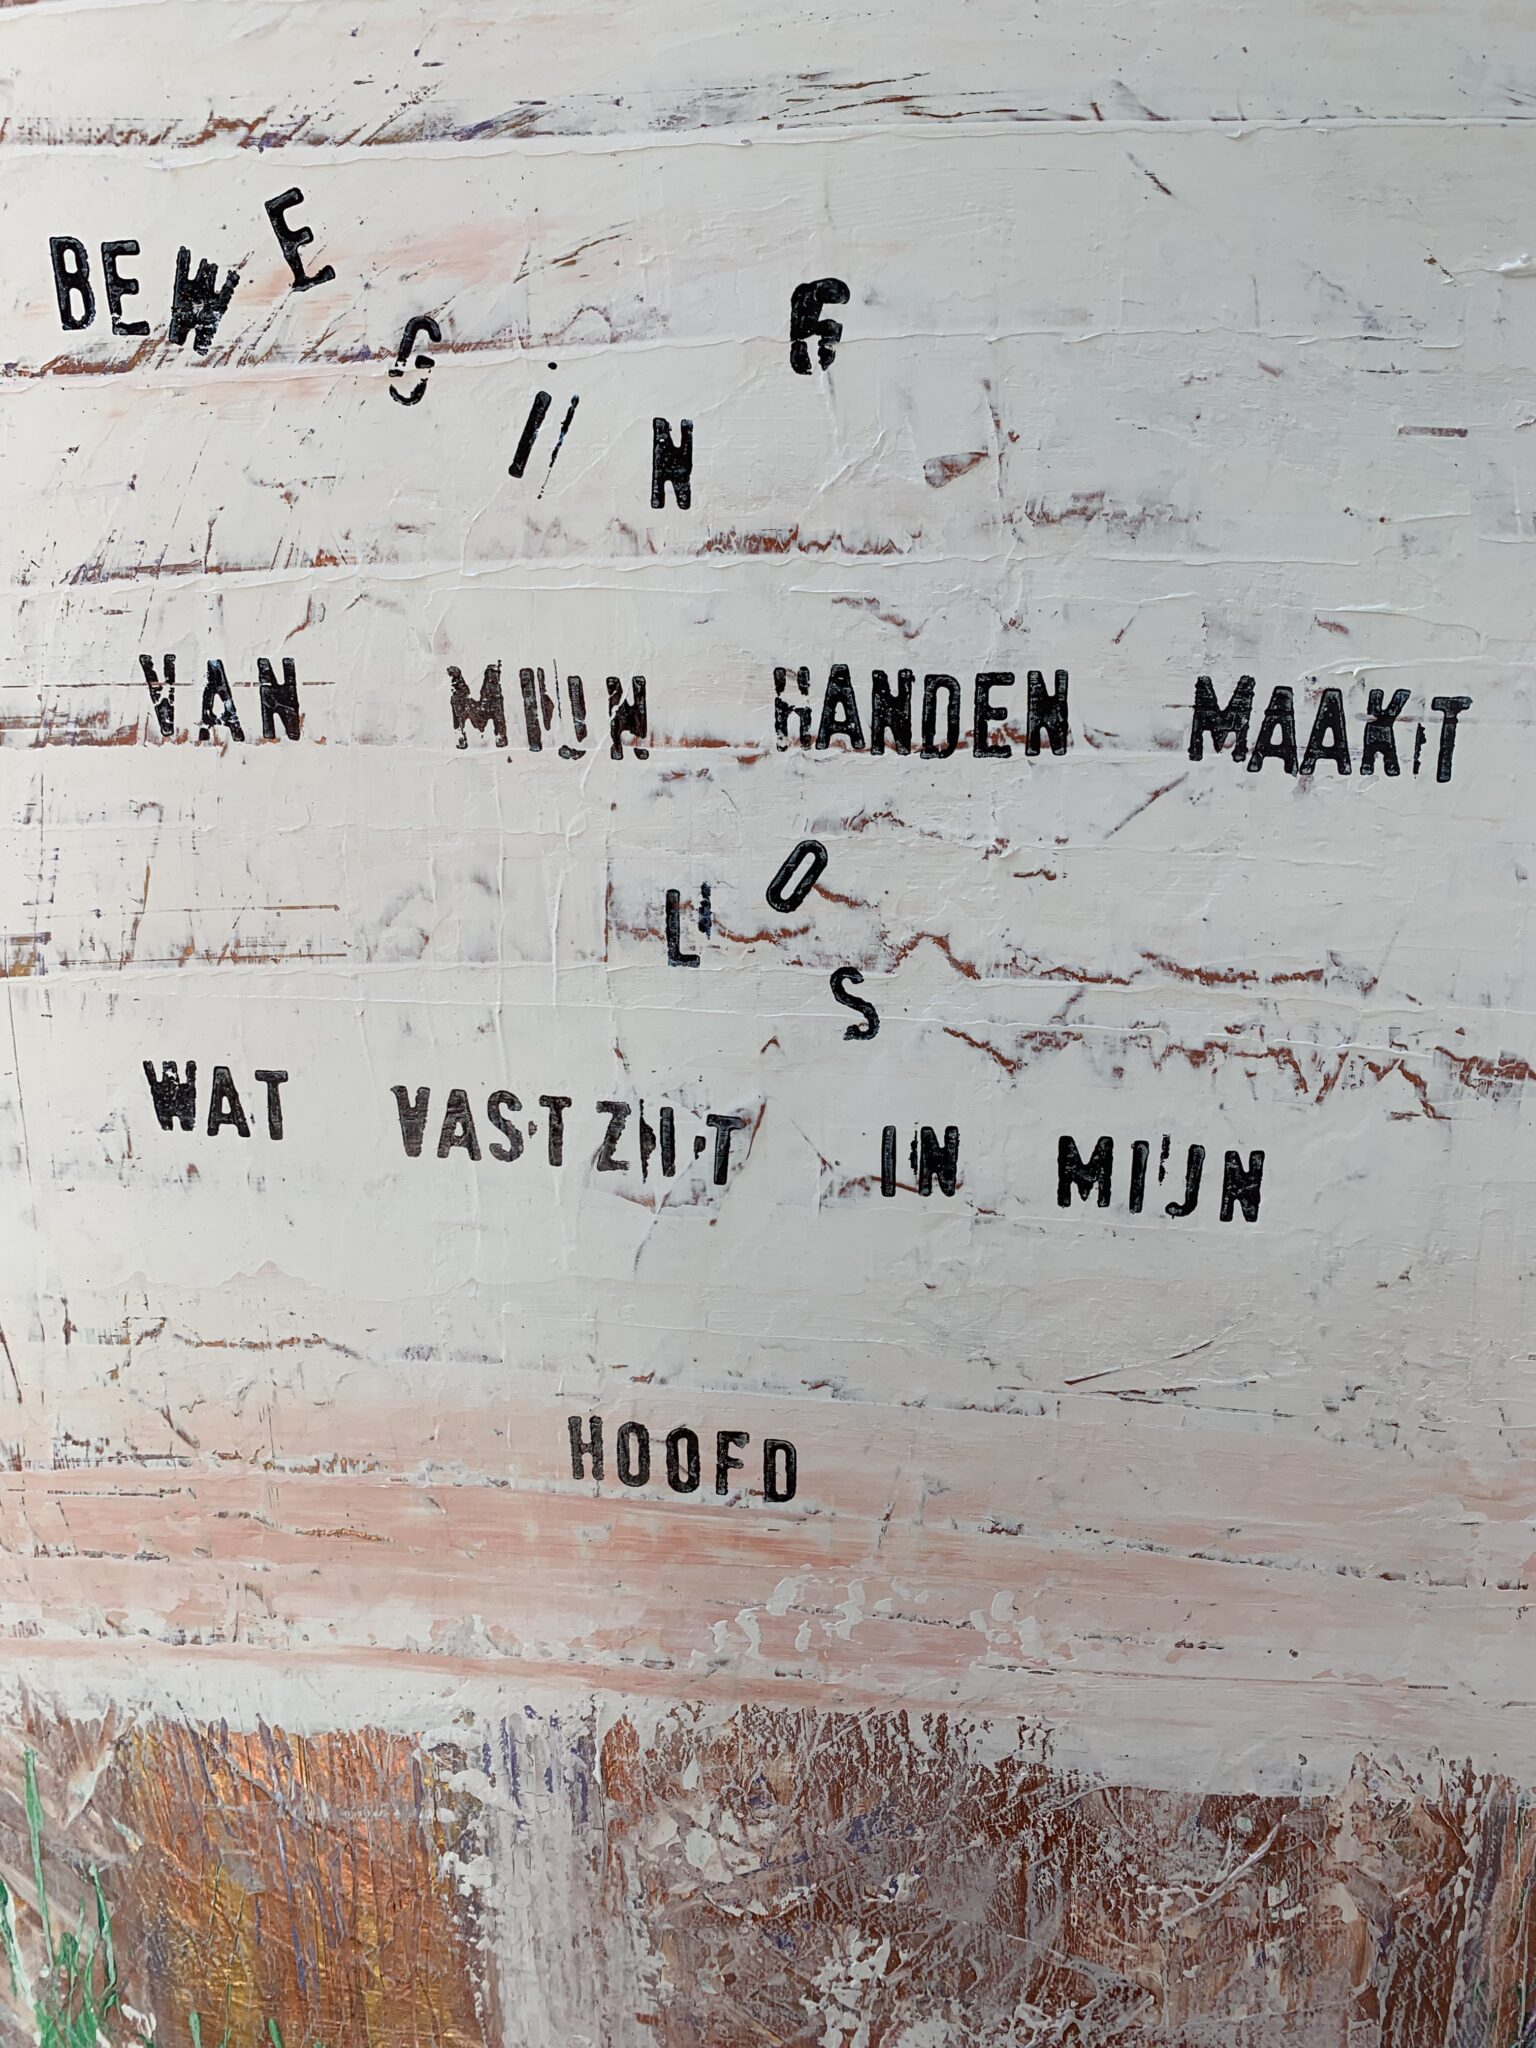 BEWEGING
VAN MIJN HANDEN MAAKT
LOS
WAT VASTZIT IN MIJN
HOOFD